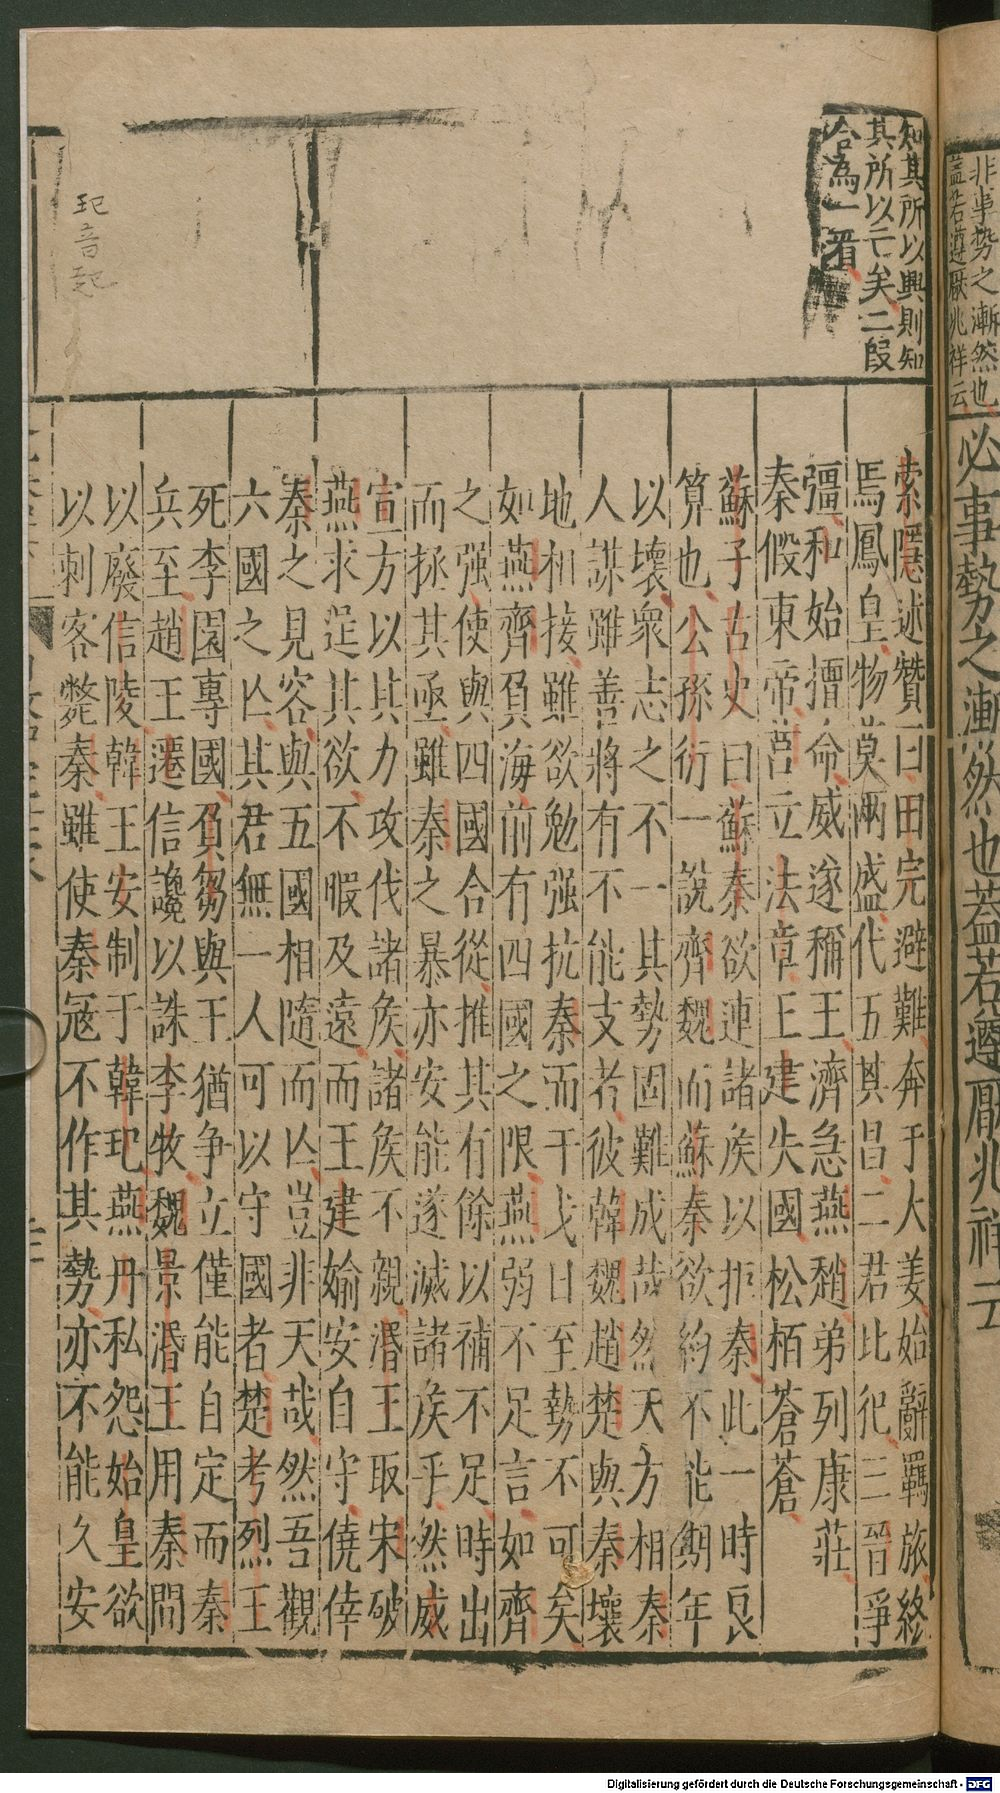 非事勢之漸然也
蓋若遵厭兆祥云
必事勢之漸然也蓋若遵厭兆祥云
知其所以興則知
其所以亡矣二段
合為一看
索隱述贊曰田完避難奔于大姜始辭羇旅終
焉鳳皇物莫兩盛代五其昌二君比犯三晉爭
彊和始擅命威遂稱王濟急燕趙弟列康莊
秦假東帝莒立法章王建失國松栢蒼蒼
蘇子古史曰蘇秦欲連諸矦以拒秦此一時良
算也公孫衍一說齊魏而蘇秦欲約不能期年
以壞衆志之不一其勢固難成哉然天方相秦
人謀雖善將有不能支者彼韓魏趙楚與秦壤
地相接雖欲勉强抗秦而干戈日至勢不可矣
如燕齊負海前有四國之限燕弱不足言如齊
之强使與四國合從推其有餘以補不足時出
而拯其亟雖秦之暴亦安能遂滅諸矦乎然威
宣方以其力攻伐諸矦諸矦不親湣王取宋破
燕求逞其欲不暇及遠而王建媮安自守僥倖
秦之見容與五國相隨而亾豈非天哉然吾觀
六國之亾其君無一人可以守國者楚考烈王
死李園專國負芻與王猶争立僅能自定而秦
兵至趙王遷信讒以誅李牧魏景湣王用秦間
以廢信陵韓王安制于韓玘燕丹私怨始皇欲
以刺客斃秦雖使秦冦不作其勢亦不能久安
玘音起
Digitalisierung gefördert durch die Deutsche Forschungsgemeinschaft - DFG